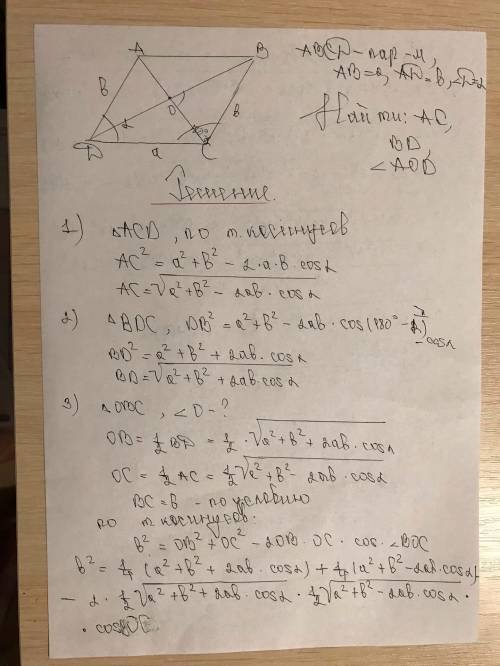 A
B
ABCD - пар-м,
AB=a, AD=b, ∠D=α
Найти: AC,
BD,
∠AOD
b
α
O
b
D
a
C
Решение.
1) △ACD, по т. косинусов
AC² = a² + b² - 2·a·b·cosα
AC = √a² + b² - 2ab·cosα
2) △BDC, DB² = a² + b² - 2ab·cos(180° - α)
-cosα
BD² = a² + b² + 2ab·cosα
BD = √a² + b² + 2ab·cosα
3) △OBC, ∠O - ?
OB = 1/2 BD = 1/2 · √a² + b² + 2ab·cosα
OC = 1/2 AC = 1/2 √a² + b² - 2ab·cosα
BC = b - по условию
по т. косинусов:
b² = OB² + OC² - 2OB·OC·cos∠BOC
b² = 1/4 (a² + b² + 2ab·cosα) + 1/4 (a² + b² - 2ab·cosα) -
- 2 · 1/2 √a² + b² + 2ab·cosα · 1/2 √a² + b² - 2ab·cosα ·
· cosBOC